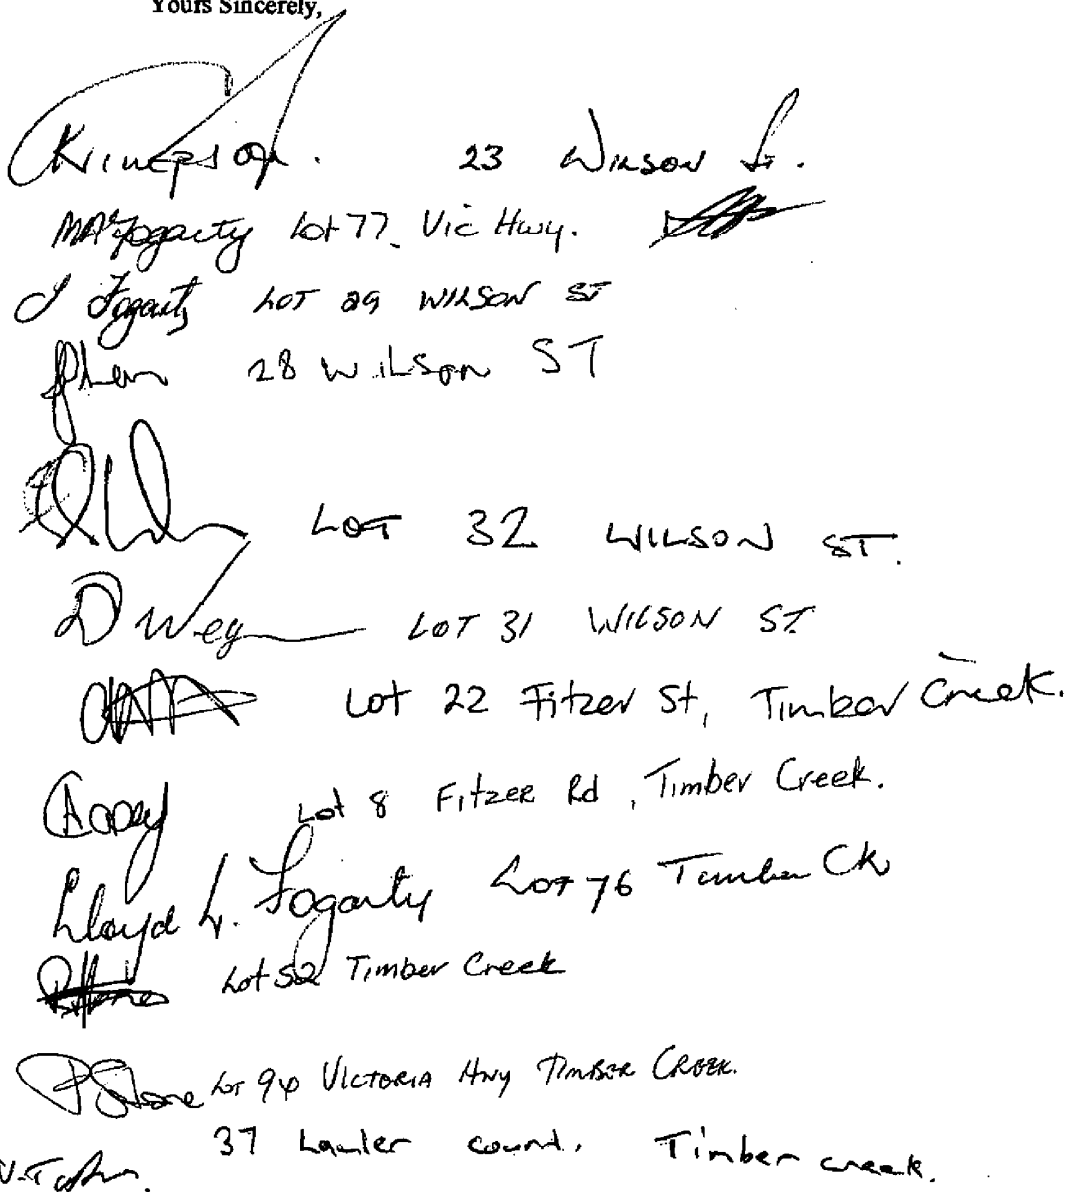 Yours Sincerely,
23 Wilson St.
Fogarty Lot 77 Vic Hwy.
J Fogarty LOT 29 WILSON ST
28 Wilson ST
LOT 32 WILSON ST.
LOT 31 WILSON ST.
Lot 22 Fitzer St, Timber Creek.
Lot 8 Fitzer Rd, Timber Creek.
Lloyd L. Fogarty Lot 76 Timber Ck
Lot 52 Timber Creek
Lot 94 VICTORIA HWY TIMBER CREEK.
37 Timber creek.